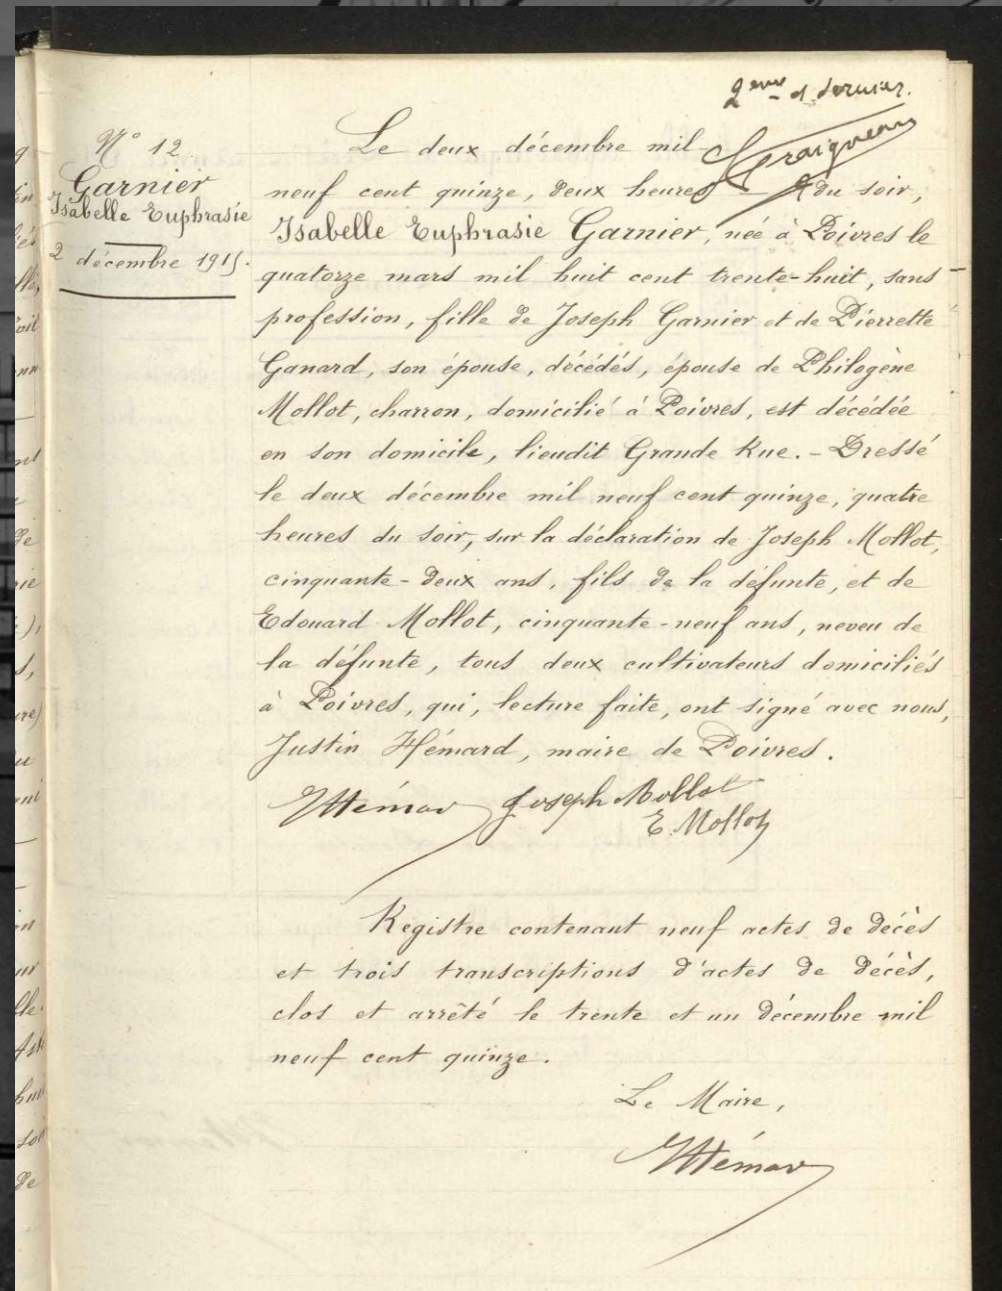 2ème et dernier.
N° 12
Garnier
Isabelle Euphrasie
2 décembre 1915.
Le deux décembre mil
neuf cent quinze, deux heures du soir,
Isabelle Euphrasie Garnier, née à Poivres le
quatorze mars mil huit cent trente-huit, sans
profession, fille de Joseph Garnier et de Pierrette
Ganard, son épouse, décédés, épouse de Philogène
Mollot, charron, domicilié à Poivres, est décédée
en son domicile, lieudit Grande Rue. - Dressé
le deux décembre mil neuf cent quinze, quatre
heures du soir, sur la déclaration de Joseph Mollot,
cinquante-deux ans, fils de la défunte, et de
Edouard Mollot, cinquante-neuf ans, neveu de
la défunte, tous deux cultivateurs domiciliés
à Poivres, qui, lecture faite, ont signé avec nous,
Justin Hémard, maire de Poivres.
JHémar Joseph Mollot
E. Mollot
Registre contenant neuf actes de décès
et trois transcriptions d'actes de décès,
clos et arrêté le trente et un décembre mil
neuf cent quinze.
Le Maire,
JHémar